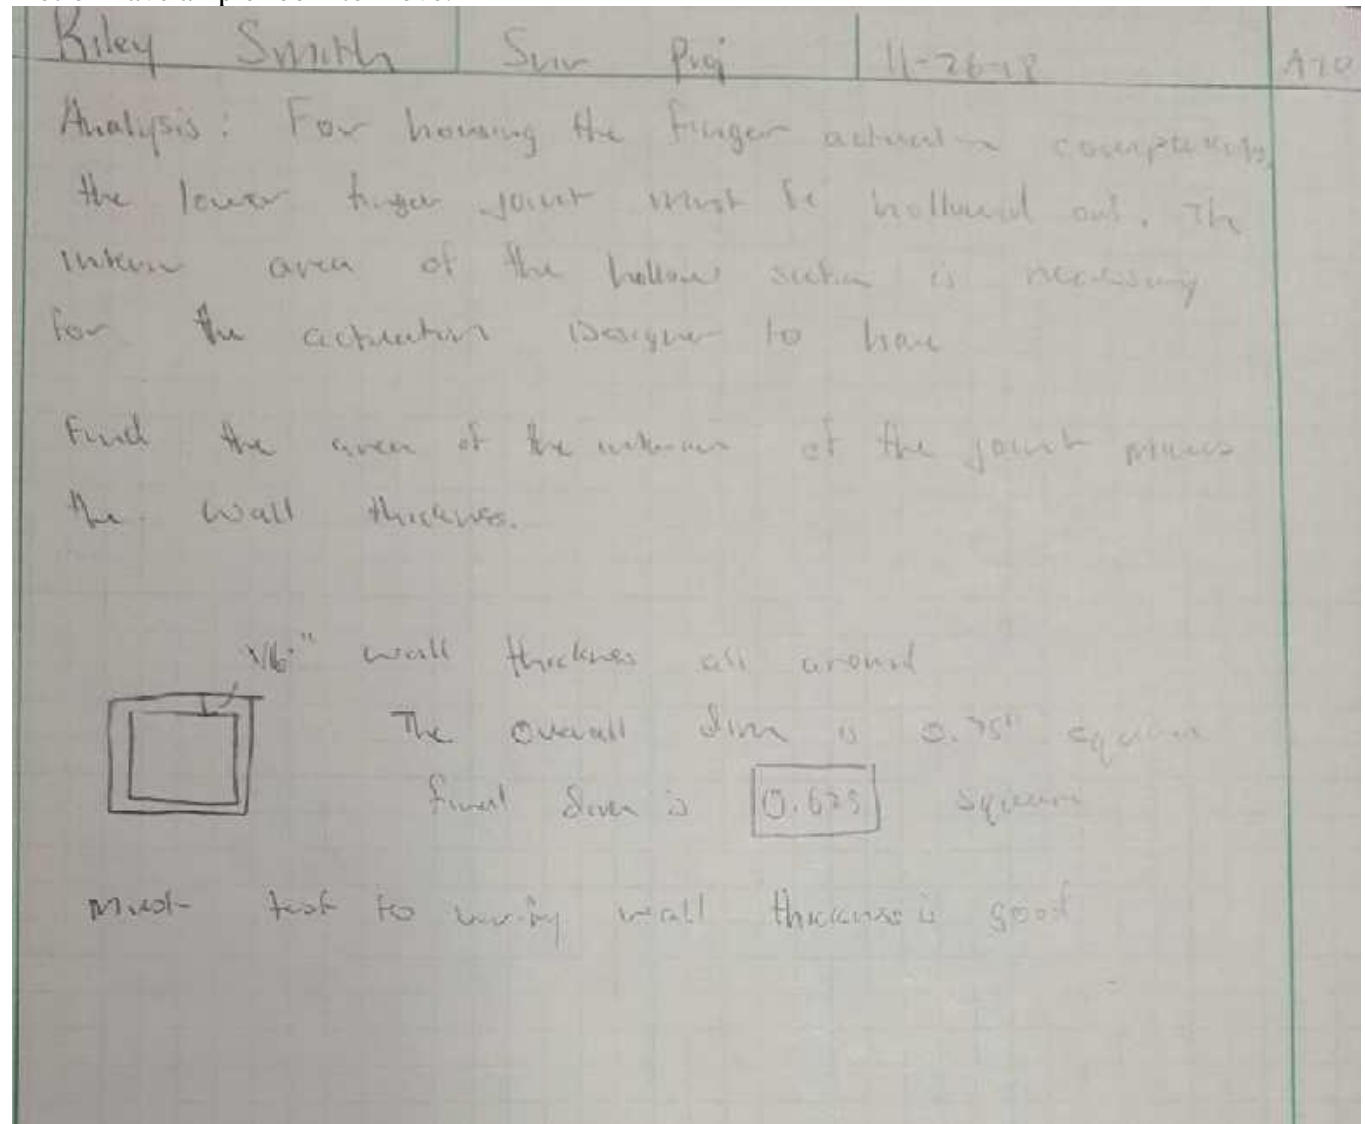 Riley Smith Snr Proj 11-26-18 A-10
Analysis: For housing the finger actuation components,
the lower finger joint must be hollowed out. The
intern area of the hollow section is necessary
for the actuation Designer to have
Find the area of the interior of the joint minus
the wall thickness.
1/16" wall thickness all around
The overall dim is 0.75" square
final dim is 0.625 square
Must test to verify wall thickness is good